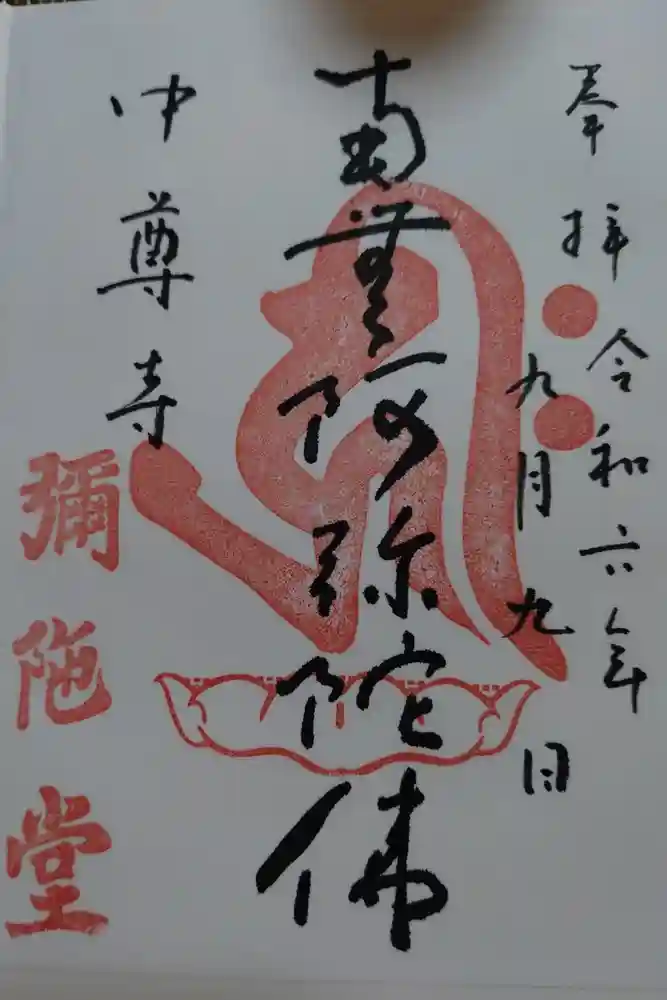 奉拝 令和六年
九月九日
南無阿弥陀佛
中尊寺
彌陁堂